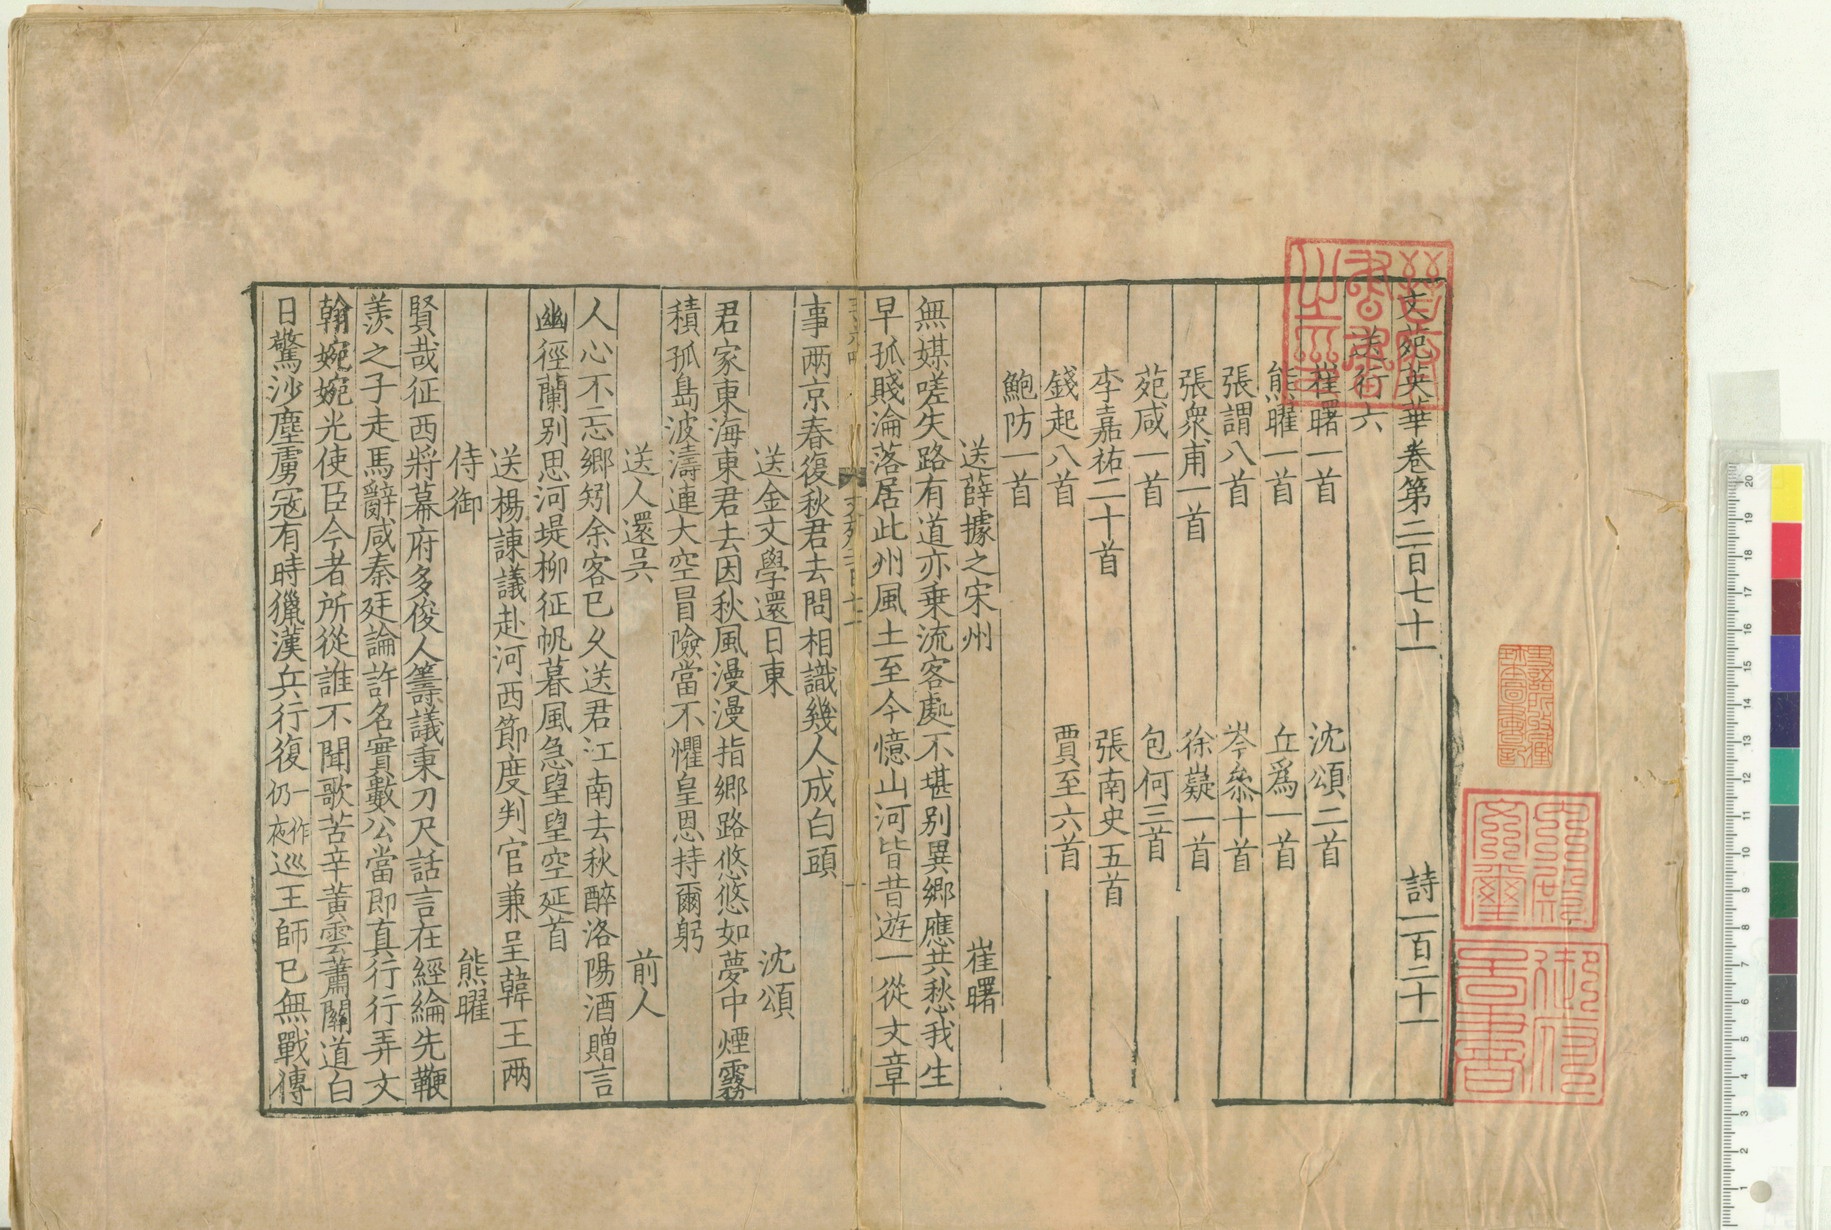 文苑英華卷第二百七十一 詩一百二十一
送行六
崔曙一首 沈頌二首
熊曜一首 丘爲一首
張謂八首 岑叅十首
張衆甫一首 徐嶷一首
苑咸一首 包何三首
李嘉祐二十首 張南史五首
錢起八首 賈至六首
鮑防一首
送薛據之宋州 崔曙
無媒嗟失路有道亦乗流客處不堪别異郷應共愁我生
早孤賤淪落居此州風土至今憶山河皆昔遊一從文章
事兩京春復秋君去問相識幾人成白頭
送金文學還日東 沈頌
君家東海東君去因秋風漫漫指郷路悠悠如夢中煙霧
積孤島波濤連大空冒險當不懼皇恩持爾躬
送人還吴 前人
人心不忘郷矧余客已久送君江南去秋醉洛陽酒贈言
幽徑蘭别思河堤柳征帆暮風急望望空延首
送楊諫議赴河西節度判官兼呈韓王两
侍御 熊曜
賢哉征西將幕府多俊人籌議秉刀尺話言在經綸先鞭
羨之子走馬辭咸秦廷論許名實數公當即真行行弄文
翰婉婉光使臣今者所從誰不聞歌苦辛黄雲蕭關道白
日驚沙塵虜寇有時獵漢兵行復一作仍夜巡王師已無戰傳